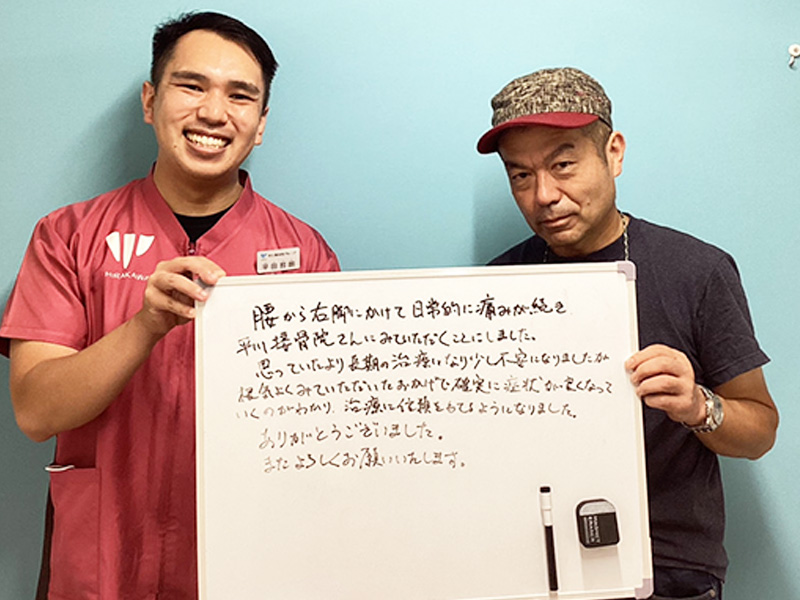 腰から右脚にかけて日常的に痛みが続き
平川接骨院さんにみていただくことにしました。
思っていたより長期の治療になり少し不安になりましたが
根気よくみていただいたおかげで確実に症状が良くなって
いくのがわかり、治療に信頼をもてるようになりました。
ありがとうございました。
またよろしくお願いいたします。
HIRAKAWA